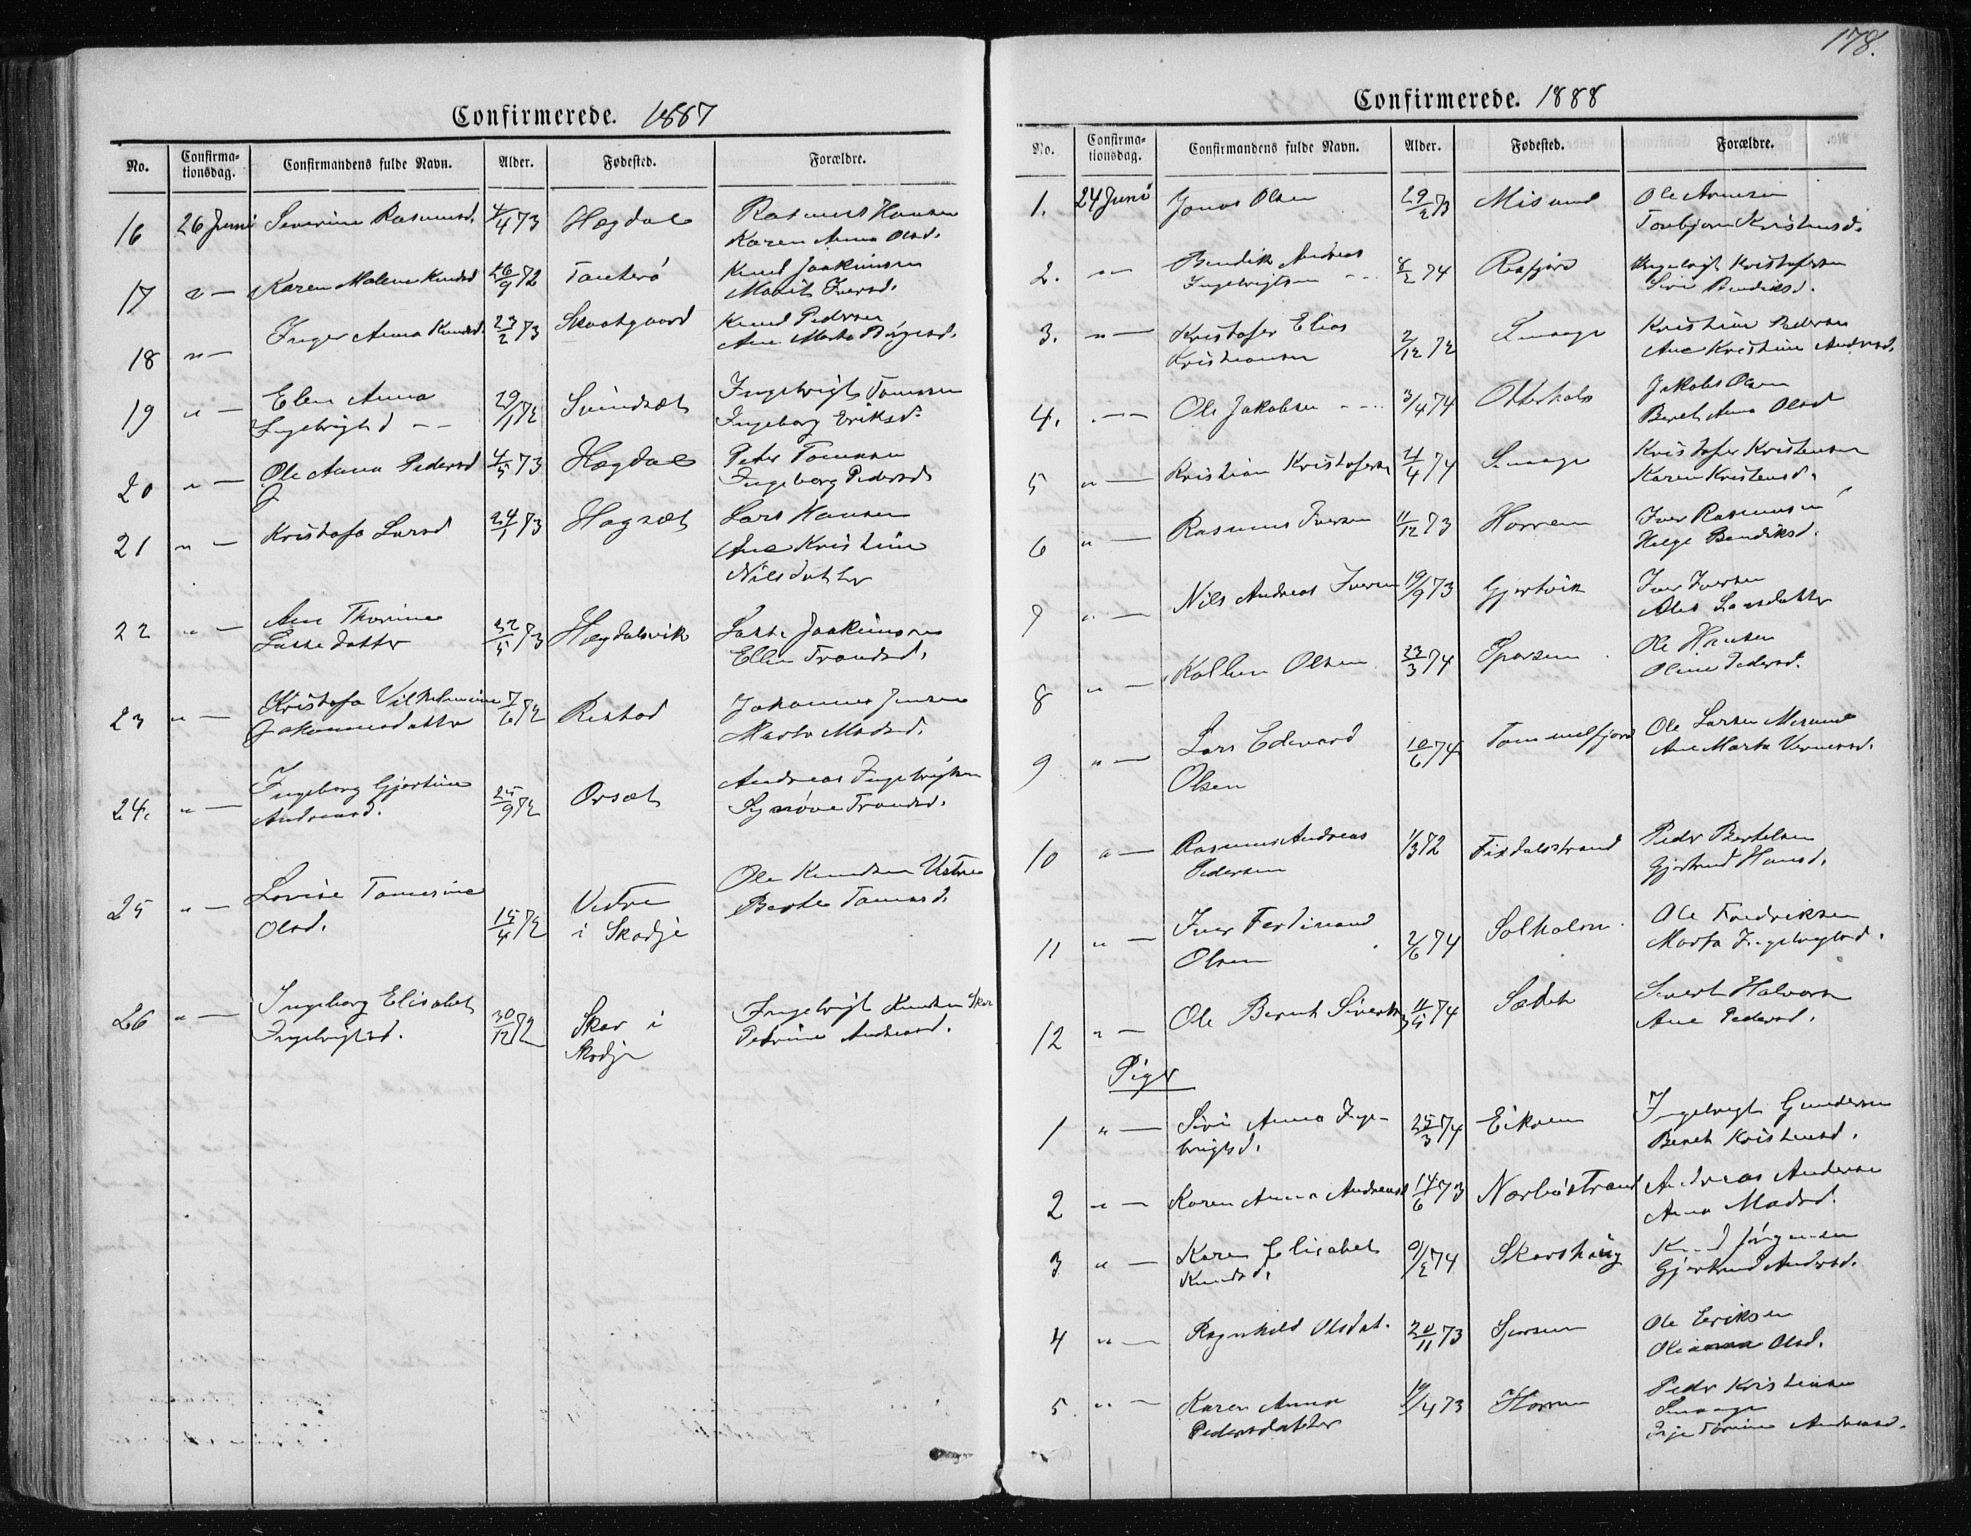 Confirmerede. 1887
No. Confirma- tionsdag. Confirmandens fulde Navn. Alder. Fødested. Forældre.
16 26 Juni Severine Rasmusd. 4/4 73 Hægdal Rasmus Hansen
Karen Anna Olsd.
17 " — Karen Malene Knudsd 26/9 72 Tauterø Knud Joakimsen
Marit Iversd.
18 " — Inger Anna Knudsd. 23/2 73 Knud Pedersen
Ane Marta
19 " — Elen Anna 29/1 72 Svindsæt Ingebrigt Tomsen
Ingebrigtsd — Ingeborg Eriksd.
20 " — Ole Anna Pedersd 4/5 73 Hægdal Peter Tomsen
Ingeborg Pedersd
21 " — Kristofa Larsd 24/1 73 Hagsæt Lars Hansen
Ane Kristine
Nilsdatter
22 " — Ane Thorine Hægdalsvik Lasse Joakimsen
Lassedatter Ellen Trondsd.
23 " — Kristofa Vilhelmine 7/6 72 Restad Johannes Jensen
Johannesdatter Marta Madsd.
24. " — Ingeborg Gjertine 25/9 72 Orsæt Andreas Ingebrigtsen
Andreasd. Synnøve Trondsd.
25 " — Lovise Tomesine 15/4 72 Vestre Ole Knudsen Vestre
Olsd. i Skodje Berte Tomasd.
26 " — Ingeborg Elisabet 30/12 72 Skar i Ingebrigt Knudsen Skar
Ingebrigtsd. Skodje Petrine Andreasd.
178.
Confirmerede. 1888
No. Confirma- tionsdag. Confirmandens fulde Navn. Alder. Fødested. Forældre.
1. 24 Juni Jonas Olsen 29/2 73 Misund Ole Arnesen
Torebjørn Kristensd.
2. " — Bendik Andreas 4/2 74 Ræstfjord Ingebrigt Kristofersen
Ingebrigtsen — Siri Bendiksd.
3. " — Kristofer Elias 2/12 72 Smaage Kristian Pedersen
Kristiansen Ane Kristine Andersd.
4. " — Ole Jakobsen 3/4 74 Otterholm Jakob Olsen
Beret Anna Olsd
5 " — Kristian Kristofersen 21/4 74 Smaage Kristofer Kristensen
Karen Kristensd.
6 " — Rasmus Iversen 11/12 73 Horrem Iver Rasmussen
Helge Bendiksd.
7 " — Nils Andreas Iversen 19/9 73 Gjertvik Iver Iversen
Larsdatter
8 " — Olsen 23/3 74 Ole Hansen
Oline Pedersd.
9 " — Lars Edvard 10/6 74 Tommelfjord Ole Larsen Misund
Olsen Ane Marta
10 " — Rasmus Andreas 1/3 72 Fixdalsstrand Peder Bertelsen
Pedersen Gjertrud Hansd.
11 " — Iver Ferdinand 2/6 74 Solholm Ole Fredriksen
Olsen Marta Ingebrigtsd.
12 " — Ole Bernt Sivertsen 11/5 74 Sivert Halvorsen
Ane Pedersd.
Piger
1 " — Siri Anna Inge- 25/3 74 Eikrem Ingebrigt Gundersen
brigtsd. Beret Kristensd.
2 " — Karen Anna Andreasd 14/6 73 Nerbøstrand Andreas Andersen
Anna Madsd.
3 " — Karen Elisabet 9/2 74 Skarshaug Knud Jørgensen
Knudsd. Gjertrud Andersd.
4 " — Ragnhild Olsdat. 20/11 73 Ole Eriksen
Olsd.
5 " — Karen Anna 19/4 73 Horrem Peder Kristiansen
Pedersdatter Smaage
Andreasd.